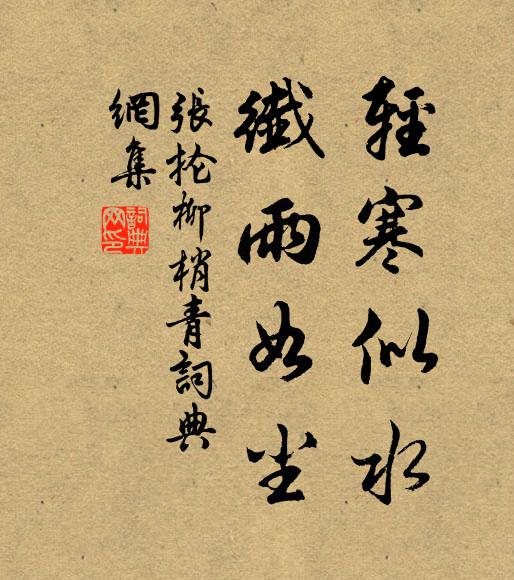 輕寒似水
纖雨如尘
張掄柳梢青詞典
網集
詞典
网印